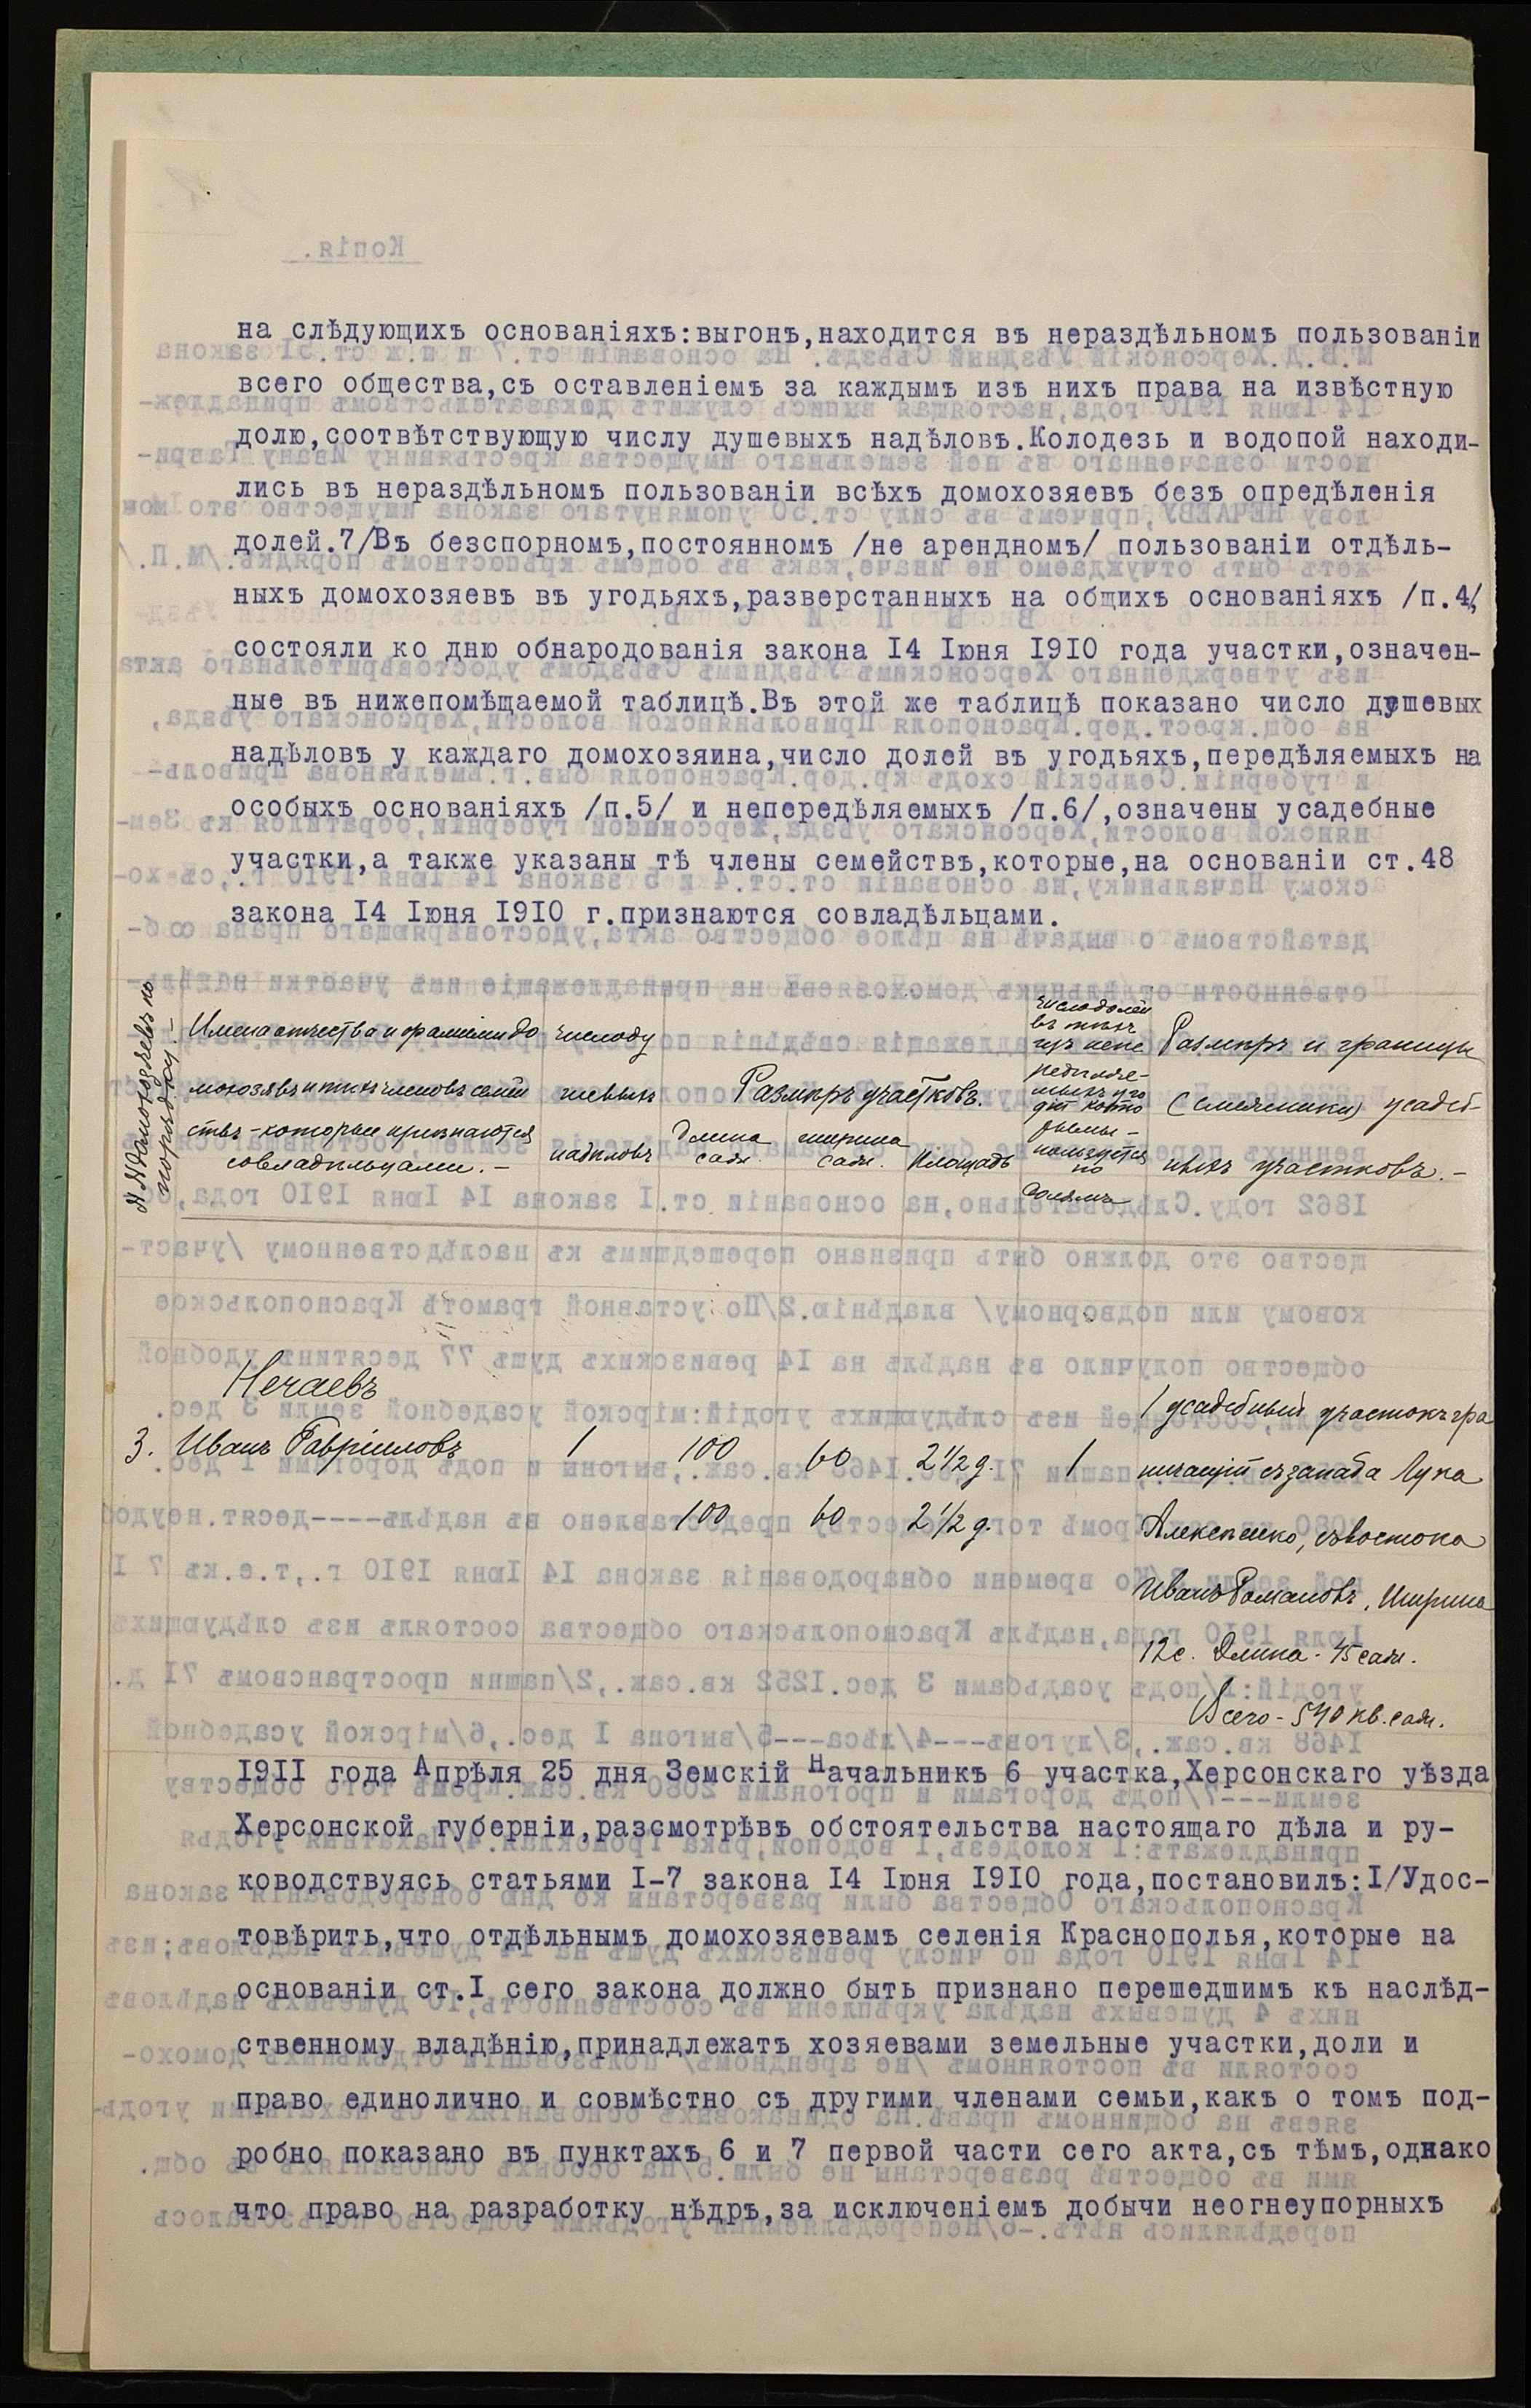 на слѣдующихъ основаніяхъ:выгонъ,находится въ нераздѣльномъ пользованіи
всего общества,съ оставленіемъ за каждымъ изъ нихъ права на извѣстную
долю,соотвѣтствующую числу душевыхъ надѣловъ.Колодезь и водопой находи-
лись въ нераздѣльномъ пользованіи всѣхъ домохозяевъ безъ опредѣленія
долей.7/Въ безспорномъ,постоянномъ /не арендномъ/ пользованіи отдѣль-
ныхъ домохозяевъ въ угодьяхъ,разверстанныхъ на общихъ основаніяхъ /п.4/,
состояли ко дню обнародованія закона I4 Іюня I9I0 года участки,означен-
ные въ нижепомѣщаемой таблицѣ.Въ этой же таблицѣ показано число душевых
надѣловъ у каждаго домохозяина,число долей въ угодьяхъ,передѣляемыхъ на
особыхъ основаніяхъ /п.5/ и непередѣляемыхъ /п.6/,означены усадебные
участки,а также указаны тѣ члены семействъ,которые,на основаніи ст.48
закона I4 Іюня I9I0 г.признаются совладѣльцами.
№№ домохозяевъ по порядку.-
Имена отчества и фамиліи до
мохозяевъ и тѣхъ членовъ семей
ствъ - которые признаются
совладѣльцами.-
число ду
шевыхъ
надѣловъ
Размѣръ участковъ.
Длина саж.
ширина саж.
Площадь
число долей
въ
долямъ
Размѣръ и границы
усадеб-
ныхъ участковъ.-
Нечаевъ
3. Иванъ Гавріиловъ 1 100 60 2 1/2 д. 1
100 60 2 1/2 д.
1 усадебный участокъ гра
ничащій съ запада Лука
Алексѣенко, съ востока
Иванъ Романовъ, Ширина
12 с. Длина - 45 саж.
Всего - 540 кв. саж.
I9II года Апрѣля 25 дня Земскій Начальникъ 6 участка,Херсонскаго уѣзда
Херсонской губерніи,разсмотрѣвъ обстоятельства настоящаго дѣла и ру-
ководствуясь статьями I-7 закона I4 Іюня I9I0 года,постановилъ:I/Удос-
товѣрить,что отдѣльнымъ домохозяевамъ селенія Краснополья,которые на
основаніи ст.I сего закона должно быть признано перешедшимъ къ наслѣд-
ственному владѣнію,принадлежатъ хозяевами земельные участки,доли и
право единолично и совмѣстно съ другими членами семьи,какъ о томъ под-
робно показано въ пунктахъ 6 и 7 первой части сего акта,съ тѣмъ,однако
что право на разработку нѣдръ,за исключеніемъ добычи неогнеупорныхъ